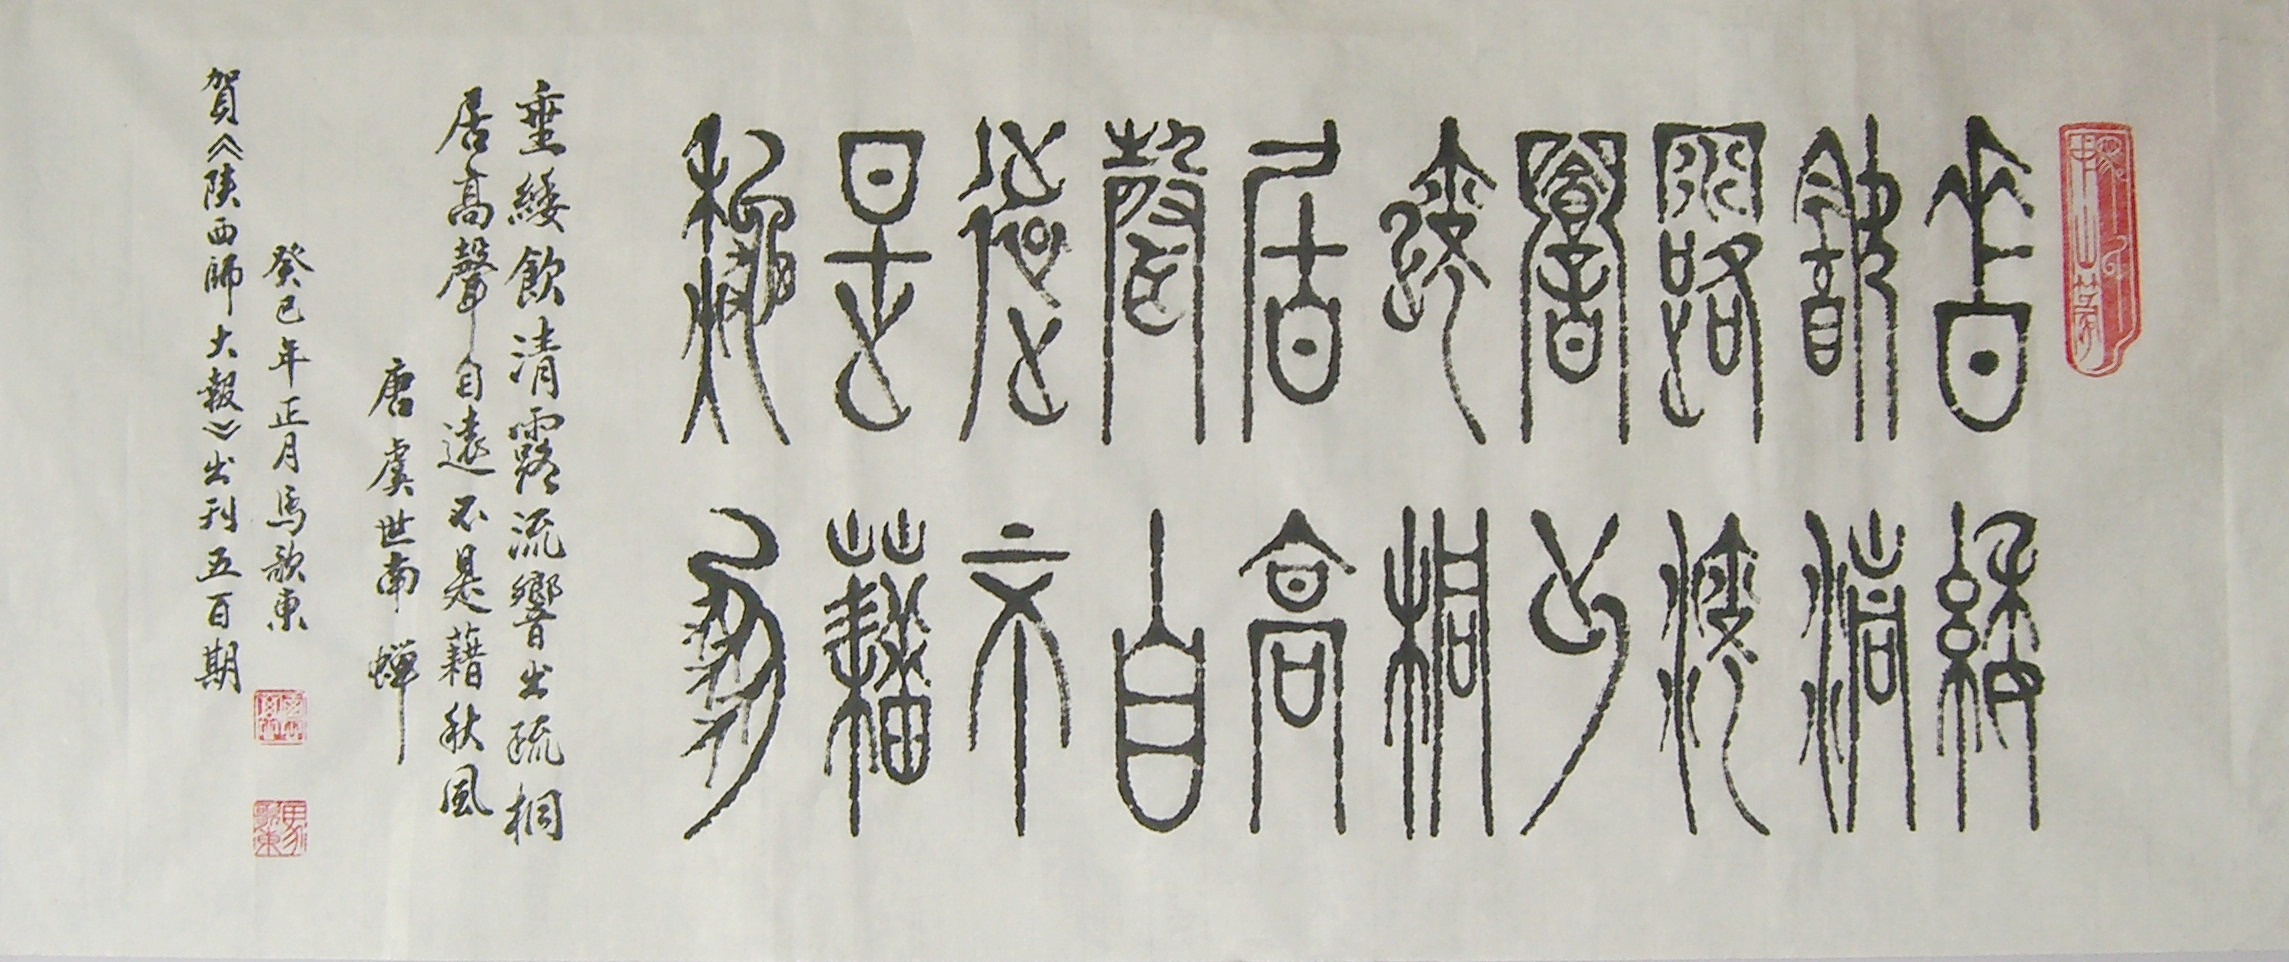 垂緌
飲清
露流
響出
疏桐
居高
聲自
遠不
是藉
秋風
垂緌飲清露流響出疏桐
居高聲自遠不是藉秋風
唐虞世南蟬
癸巳年正月馬歌東
馬歌東
賀《陝西師大報》出刊五百期